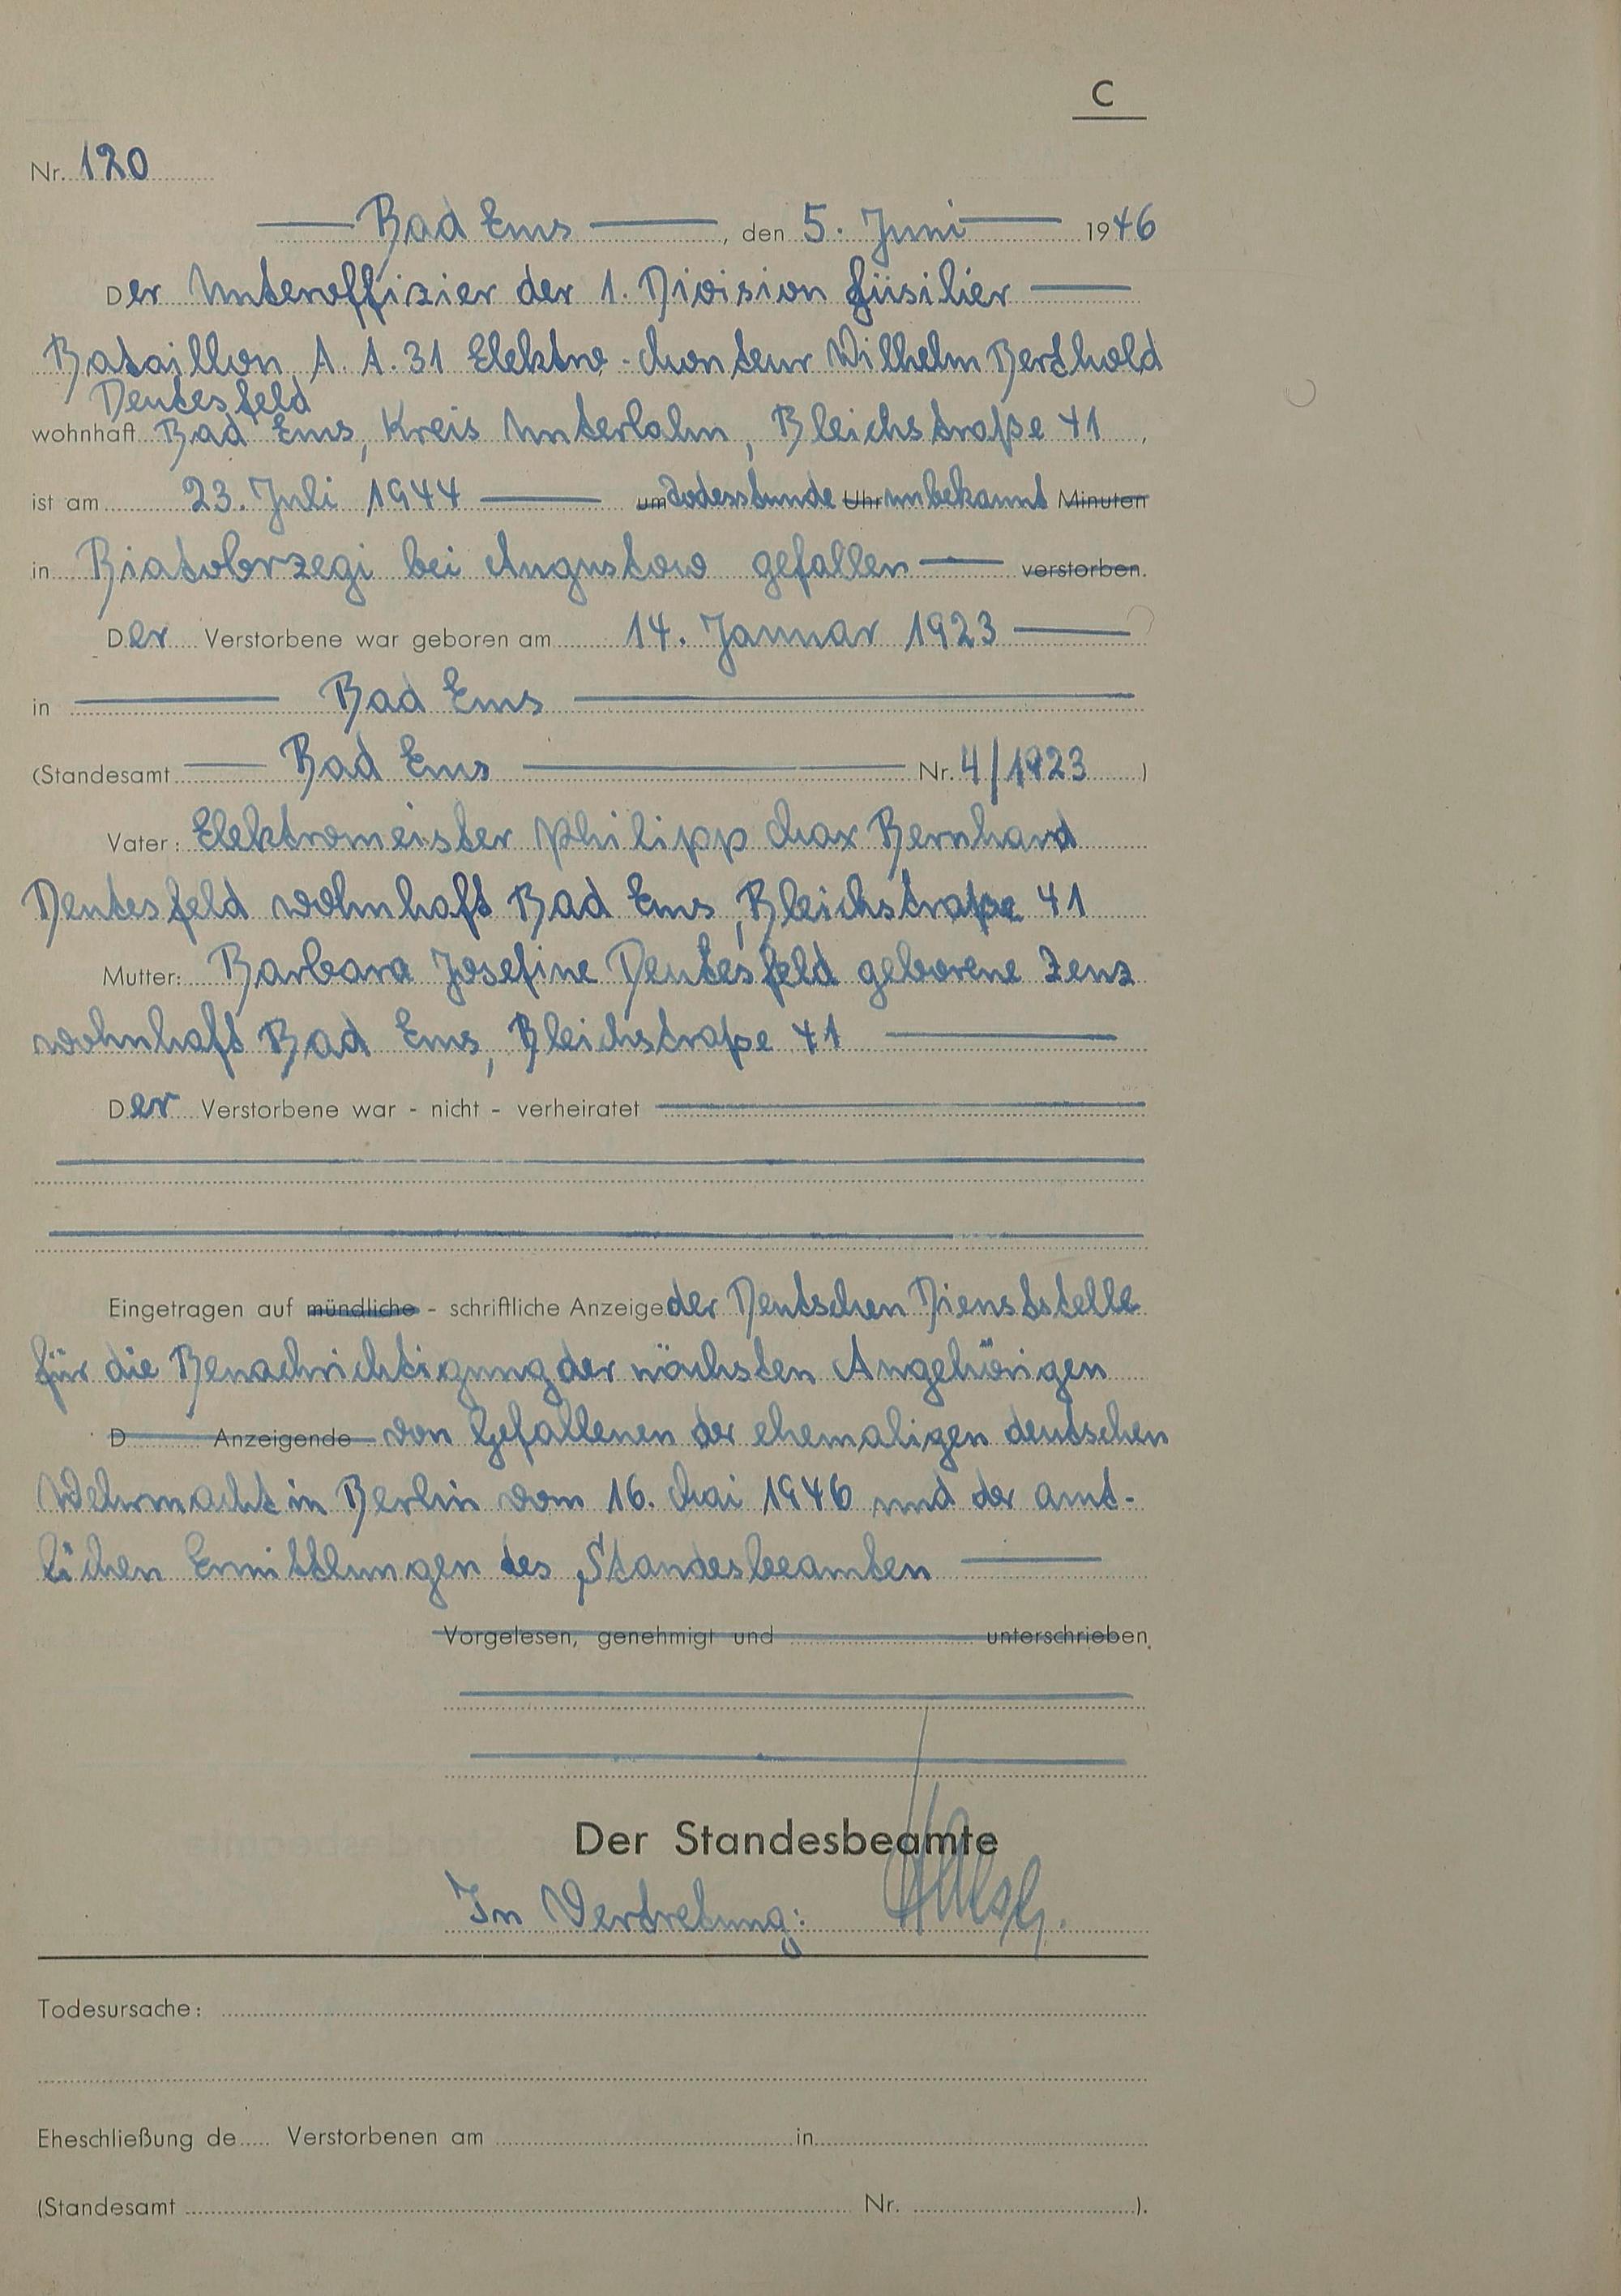 C
Nr. 120
Bad Ems, den 5. Juni 1946
Der Unteroffizier der 1. Division Füsilier
Bataillon A. A. 31 Elektro-Monteur Wilhelm Berthold
Deutesfeld
wohnhaft Bad Ems, Kreis Unterlahn, Bleichstraße 41,
ist am 23. Juli 1944 um Todesstunde Uhr unbekannt Minuten
in Biatobrzegi bei Augustow gefallen verstorben.
Der Verstorbene war geboren am 14. Januar 1923
in Bad Ems
(Standesamt Bad Ems Nr. 4/1923)
Vater: Elektromeister Philipp Max Bernhard
Deutesfeld wohnhaft Bad Ems, Bleichstraße 41
Mutter: Barbara Josefine Deutesfeld geborene Zenz
wohnhaft Bad Ems, Bleichstraße 41
Der Verstorbene war - nicht - verheiratet
Eingetragen auf mündliche - schriftliche Anzeige der Deutschen Dienststelle
für die Benachrichtigung der nächsten Angehörigen
D Anzeigende von Gefallenen der ehemaligen deutschen
Wehrmacht in Berlin vom 16. Mai 1946 und der amt-
lichen Ermittlungen des Standesbeamten
Vorgelesen, genehmigt und unterschrieben
Der Standesbeamte
In Vertretung:
Todesursache:
Eheschließung de Verstorbenen am in
(Standesamt Nr. ).